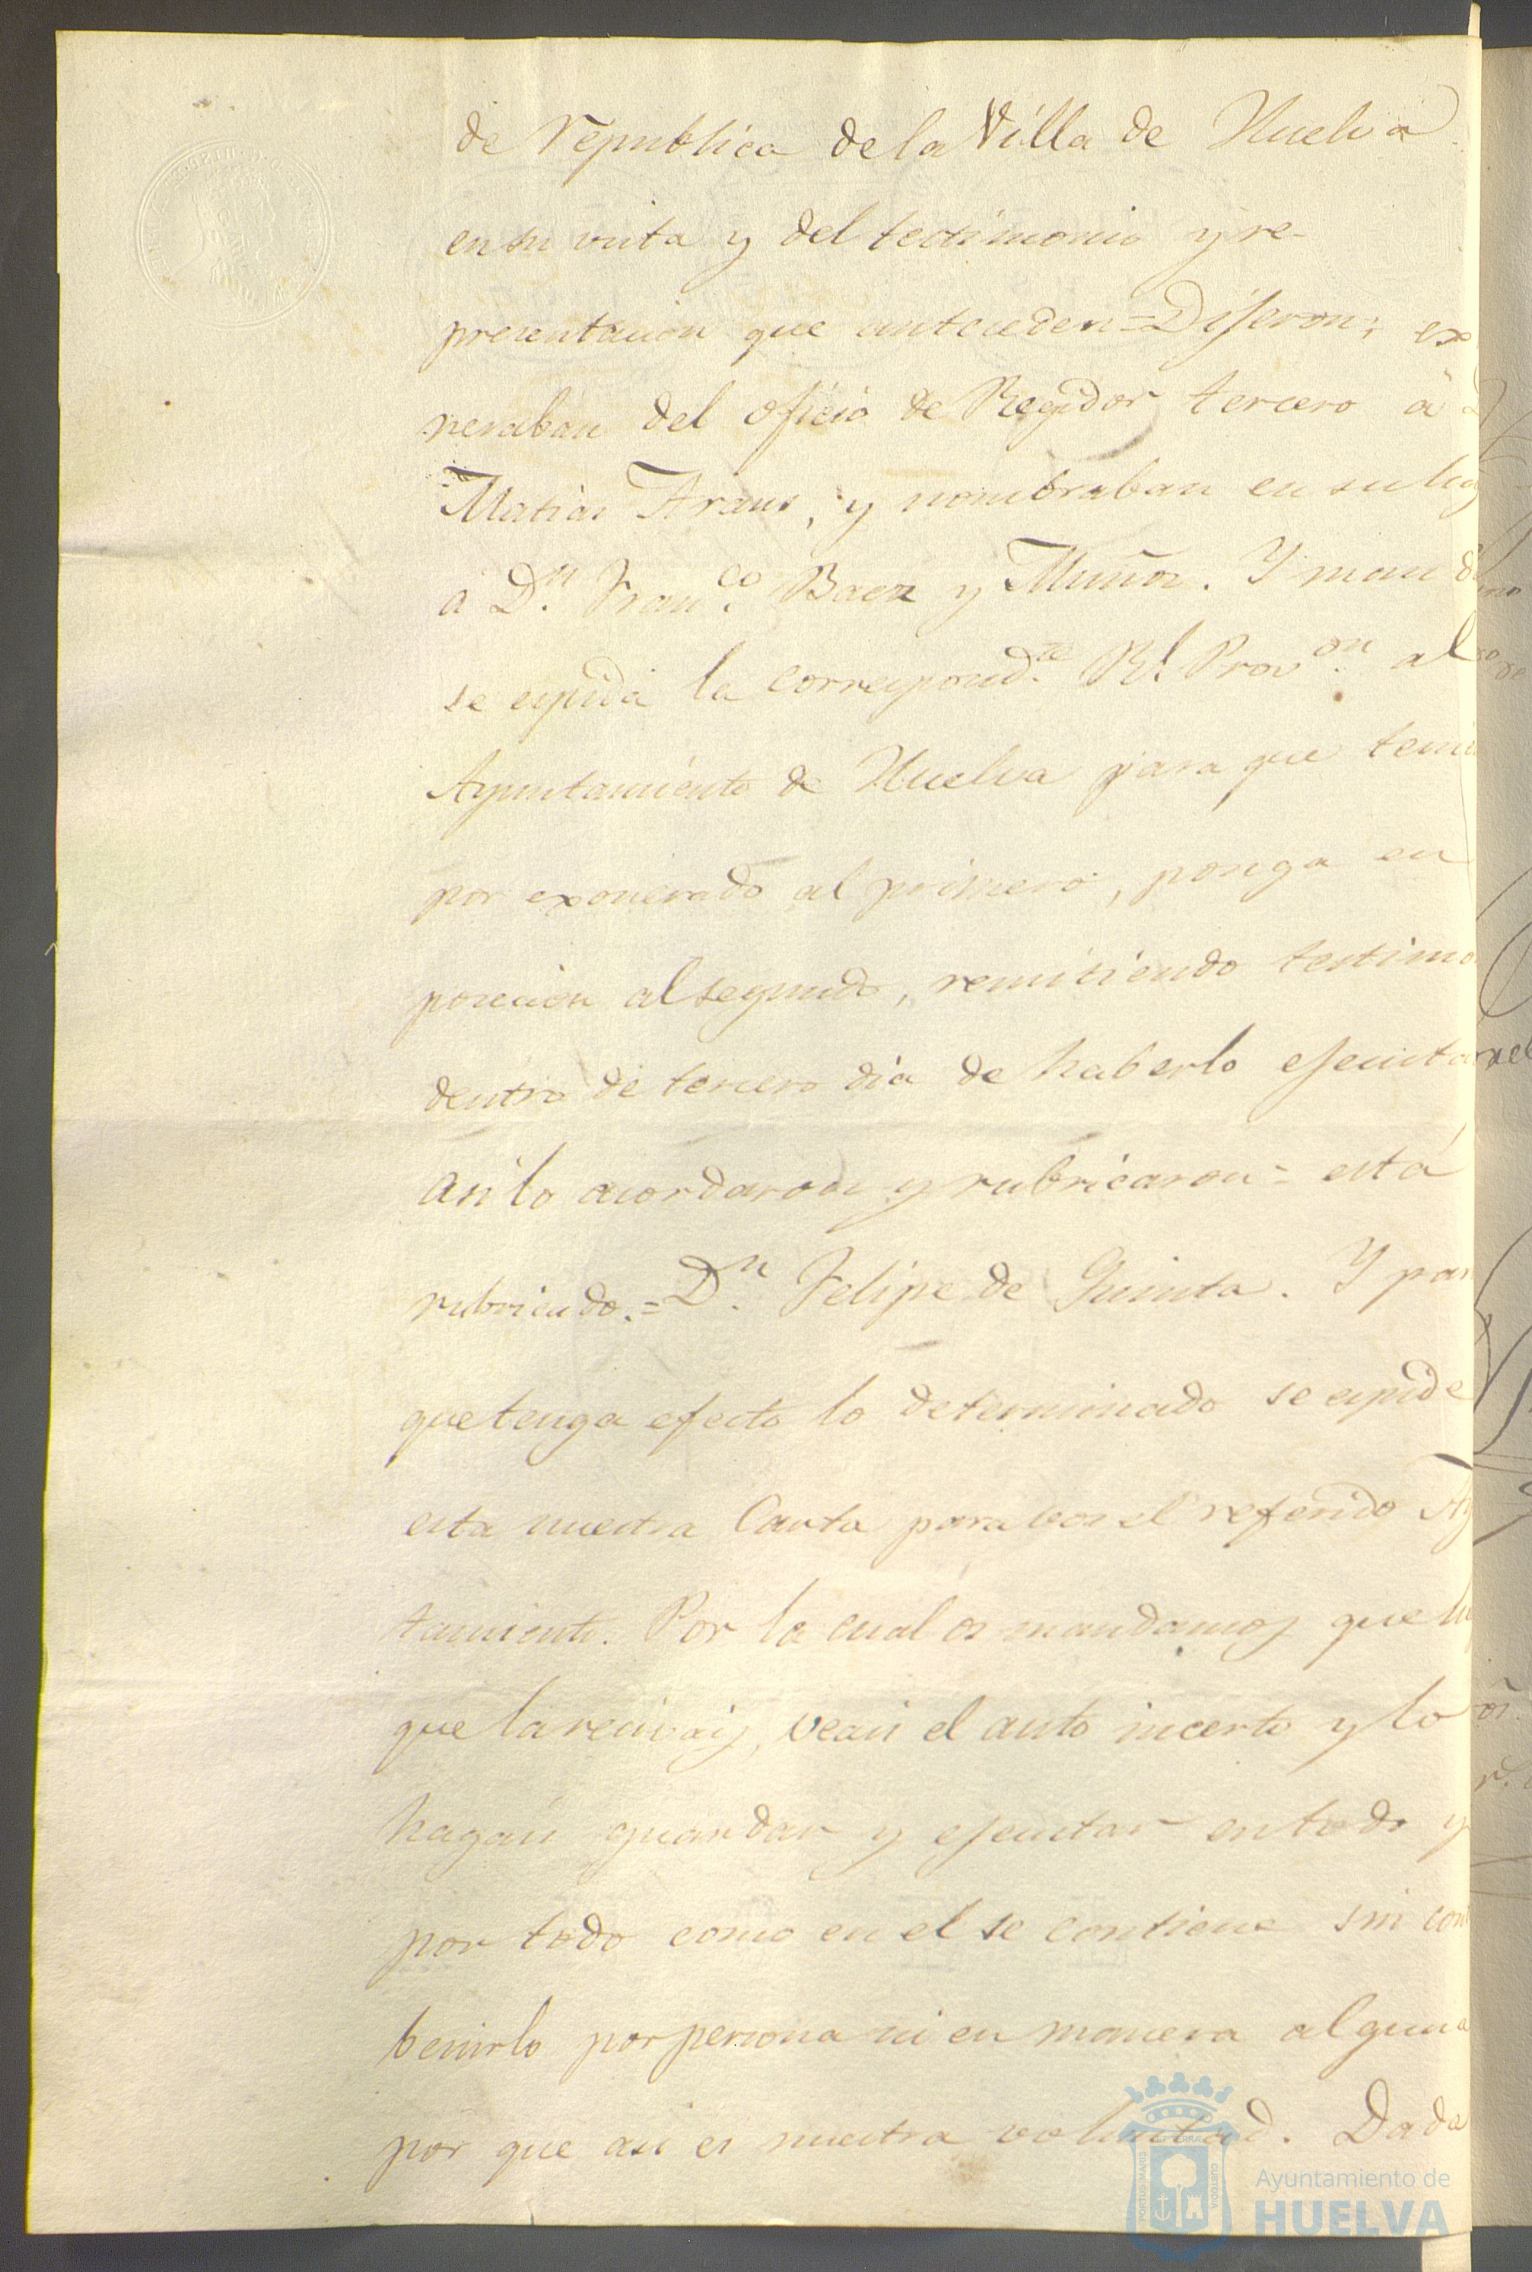 de republica de la Villa de Huelva
en su vista y del testimonio y re-
presentacion que anteceden = Dijeron; ex
neraban del oficio de Regidor tercero á
Matias Arauz, y nombraban en su lug
a Dn. Franco. Baez y Muñoz. Y man
se espida la correspondte. Rl. Provon. al
Ayuntamiento de Huelva para que teni
por exonerado al primero, ponga en
posecion al segundo, remitiendo testimo
dentro de tercero dia de haberlo ejecuta
asi lo acordaron y rubricaron = está
rubricado. = Dn. Felipe de Quinta. Y par
que tenga efecto lo determinado se espide
esta nuestra Carta para vos el referido Ay
tamiento. Por la cual os mandamos que lu
que la recivais, veais el auto incerto y lo
hagais guardar y ejecutar en todo y
por todo como en el se contiene sin con
benirlo por persona ni en manera alguna
por que asi es nuestra voluntad. Dada
Ayuntamiento de
HUELVA